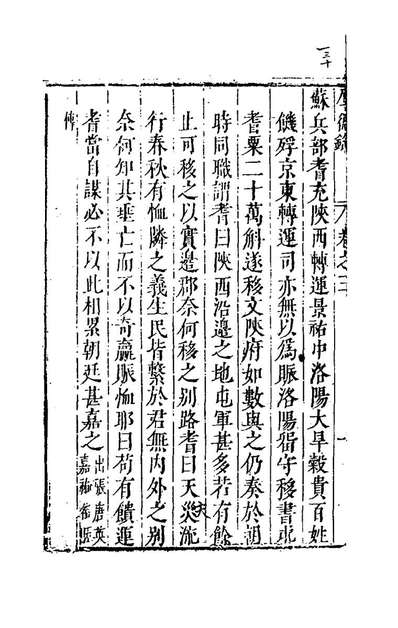 一三十
厚德錄 卷之二 一
蘇兵部耆充陝西轉運景祐中洛陽大旱穀貴百姓
饑殍京東轉運司亦無以爲賑洛陽留守移書求
耆粟二十萬斛遂移文陝府如數與之仍奏於朝
時同職謂耆曰陝西沿邊之地屯軍甚多若有餘
止可移之以實邊郡奈何移之别路耆曰天災流
行春秋有恤隣之義生民皆繫於君無内外之别
奈何知其垂亡而不以奇贏賑恤耶曰苟有饋運
耆當自謀必不以此相累朝廷甚嘉之出張唐英嘉祐名臣
傳